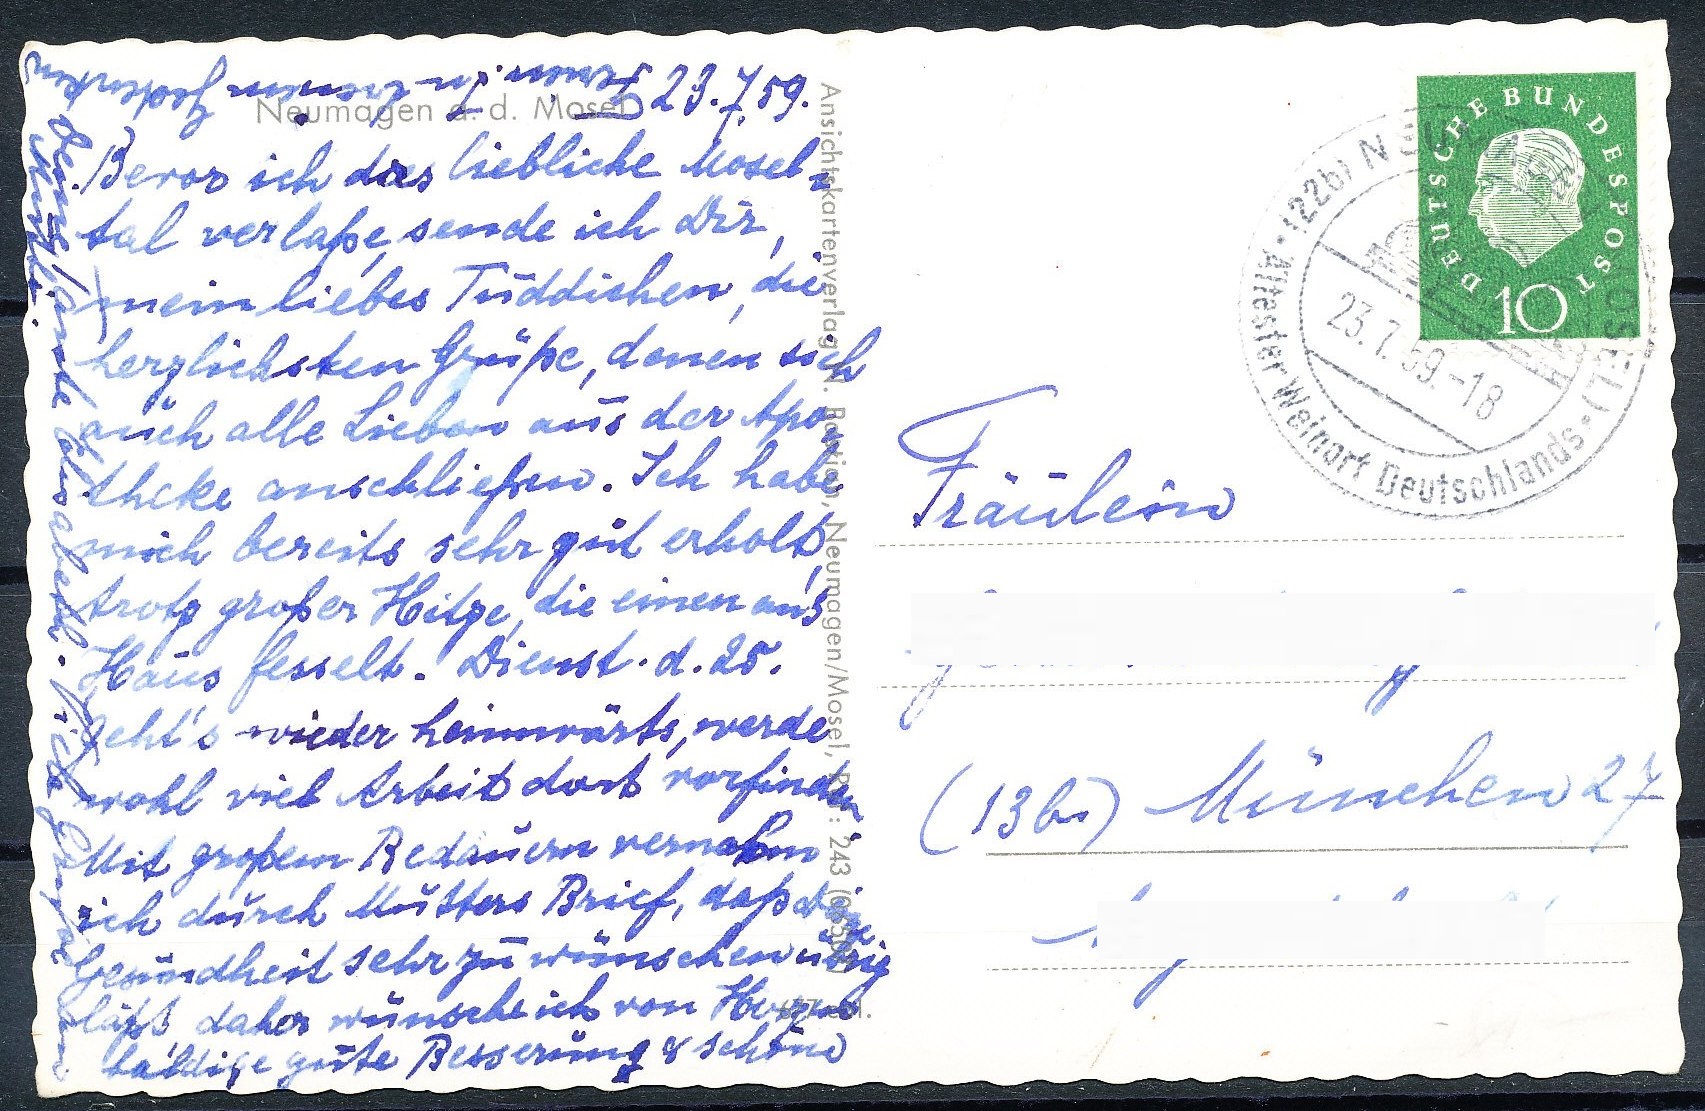 Neumagen a. d. Mosel
23.7.59.
Bevor ich das liebliche Mosel-
tal verlaße, sende ich Dir,
mein liebes Tüddichen, die
herzlichsten Grüße, denen sich
auch alle Lieben aus der Apo-
theke anschließen. Ich habe
mich bereits sehr gut erholt,
trotz großer Hitze, die einen an's
Haus fesselt. Dienst. d. 25.
geht's wieder heimwärts, werde
wohl viel Arbeit dort vorfinden.
Mit großem Bedauern vernahm
ich durch Mutters Brief, daß Deine
Gesundheit sehr zu wünschen übrig
läßt, daher wünsche ich von Herzen
baldige gute Besserung & schöne
Viele Grüße
Ansichtskartenverlag N. Bastian, Neumagen/Mosel, 243
DEUTSCHE BUNDESPOST
10
(22b) NEUMAGEN (MOSEL)
Ältester Weinort Deutschlands
23.7.59.-18
Fräulein
(13b) München 27